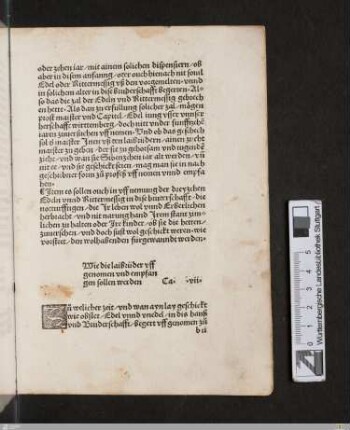 oder zehen iar / mit ainem solichen dispensiern / ob
aber in disem anfanng / oder ouch hienach nit souil
Edel oder Rittermessig vß den vorgemelten / vnnd
in solichem alter in dise bruderschafft begerten / Al
so das die zal der Edeln vnd Rittermessig gebrech
en hette / Als dan zu erfüllung solicher zal / mögen
propst maister vnd Capitel / Edel iung vsser vnnser
herschafft wirttemberg / doch nitt vnder funffzehē
iaren zuuersuchen vff nemen / Vnd ob das geschech
sol maister Inen vß den laibrüdern / ainen zucht
maister zu geben / der sie zu gehorsam vnd tugend
ziehe / vnd wan sie Sibenzehen iar alt werden / vn̄
nit ee / vnd sie geschickt seien / mag man sie in nach
geschribner form zu profeß vff nemen vnnd empfa
hen /
Item es sollen ouch in vff nemung der dryzehen
Edeln vnnd Rittermessig in dise bruderschafft / die
notturfftigen / die Ir leben wol vnnd Erberlichen
herbracht / vnd nit narung hand Irem stant zim
lichen zu halten oder Ire kinder / ob sie die hetten /
zuuersehen / vnd doch sust wol geschickt weren / wie
vorstet / den wolhabenden fürgewanndt werden /
Wie die laibrüder vff
genomen vnd empfan
gen sollen werden Ca- -vii-
Zu welicher zeit / vnd wan ayn lay geschickt
wie obstet / Edel vnnd vnedel / in dis hauß
vnd Bruderschafft / Begert vff genomen zů
b ii
Württembergische Landesbibliothek Stuttgart